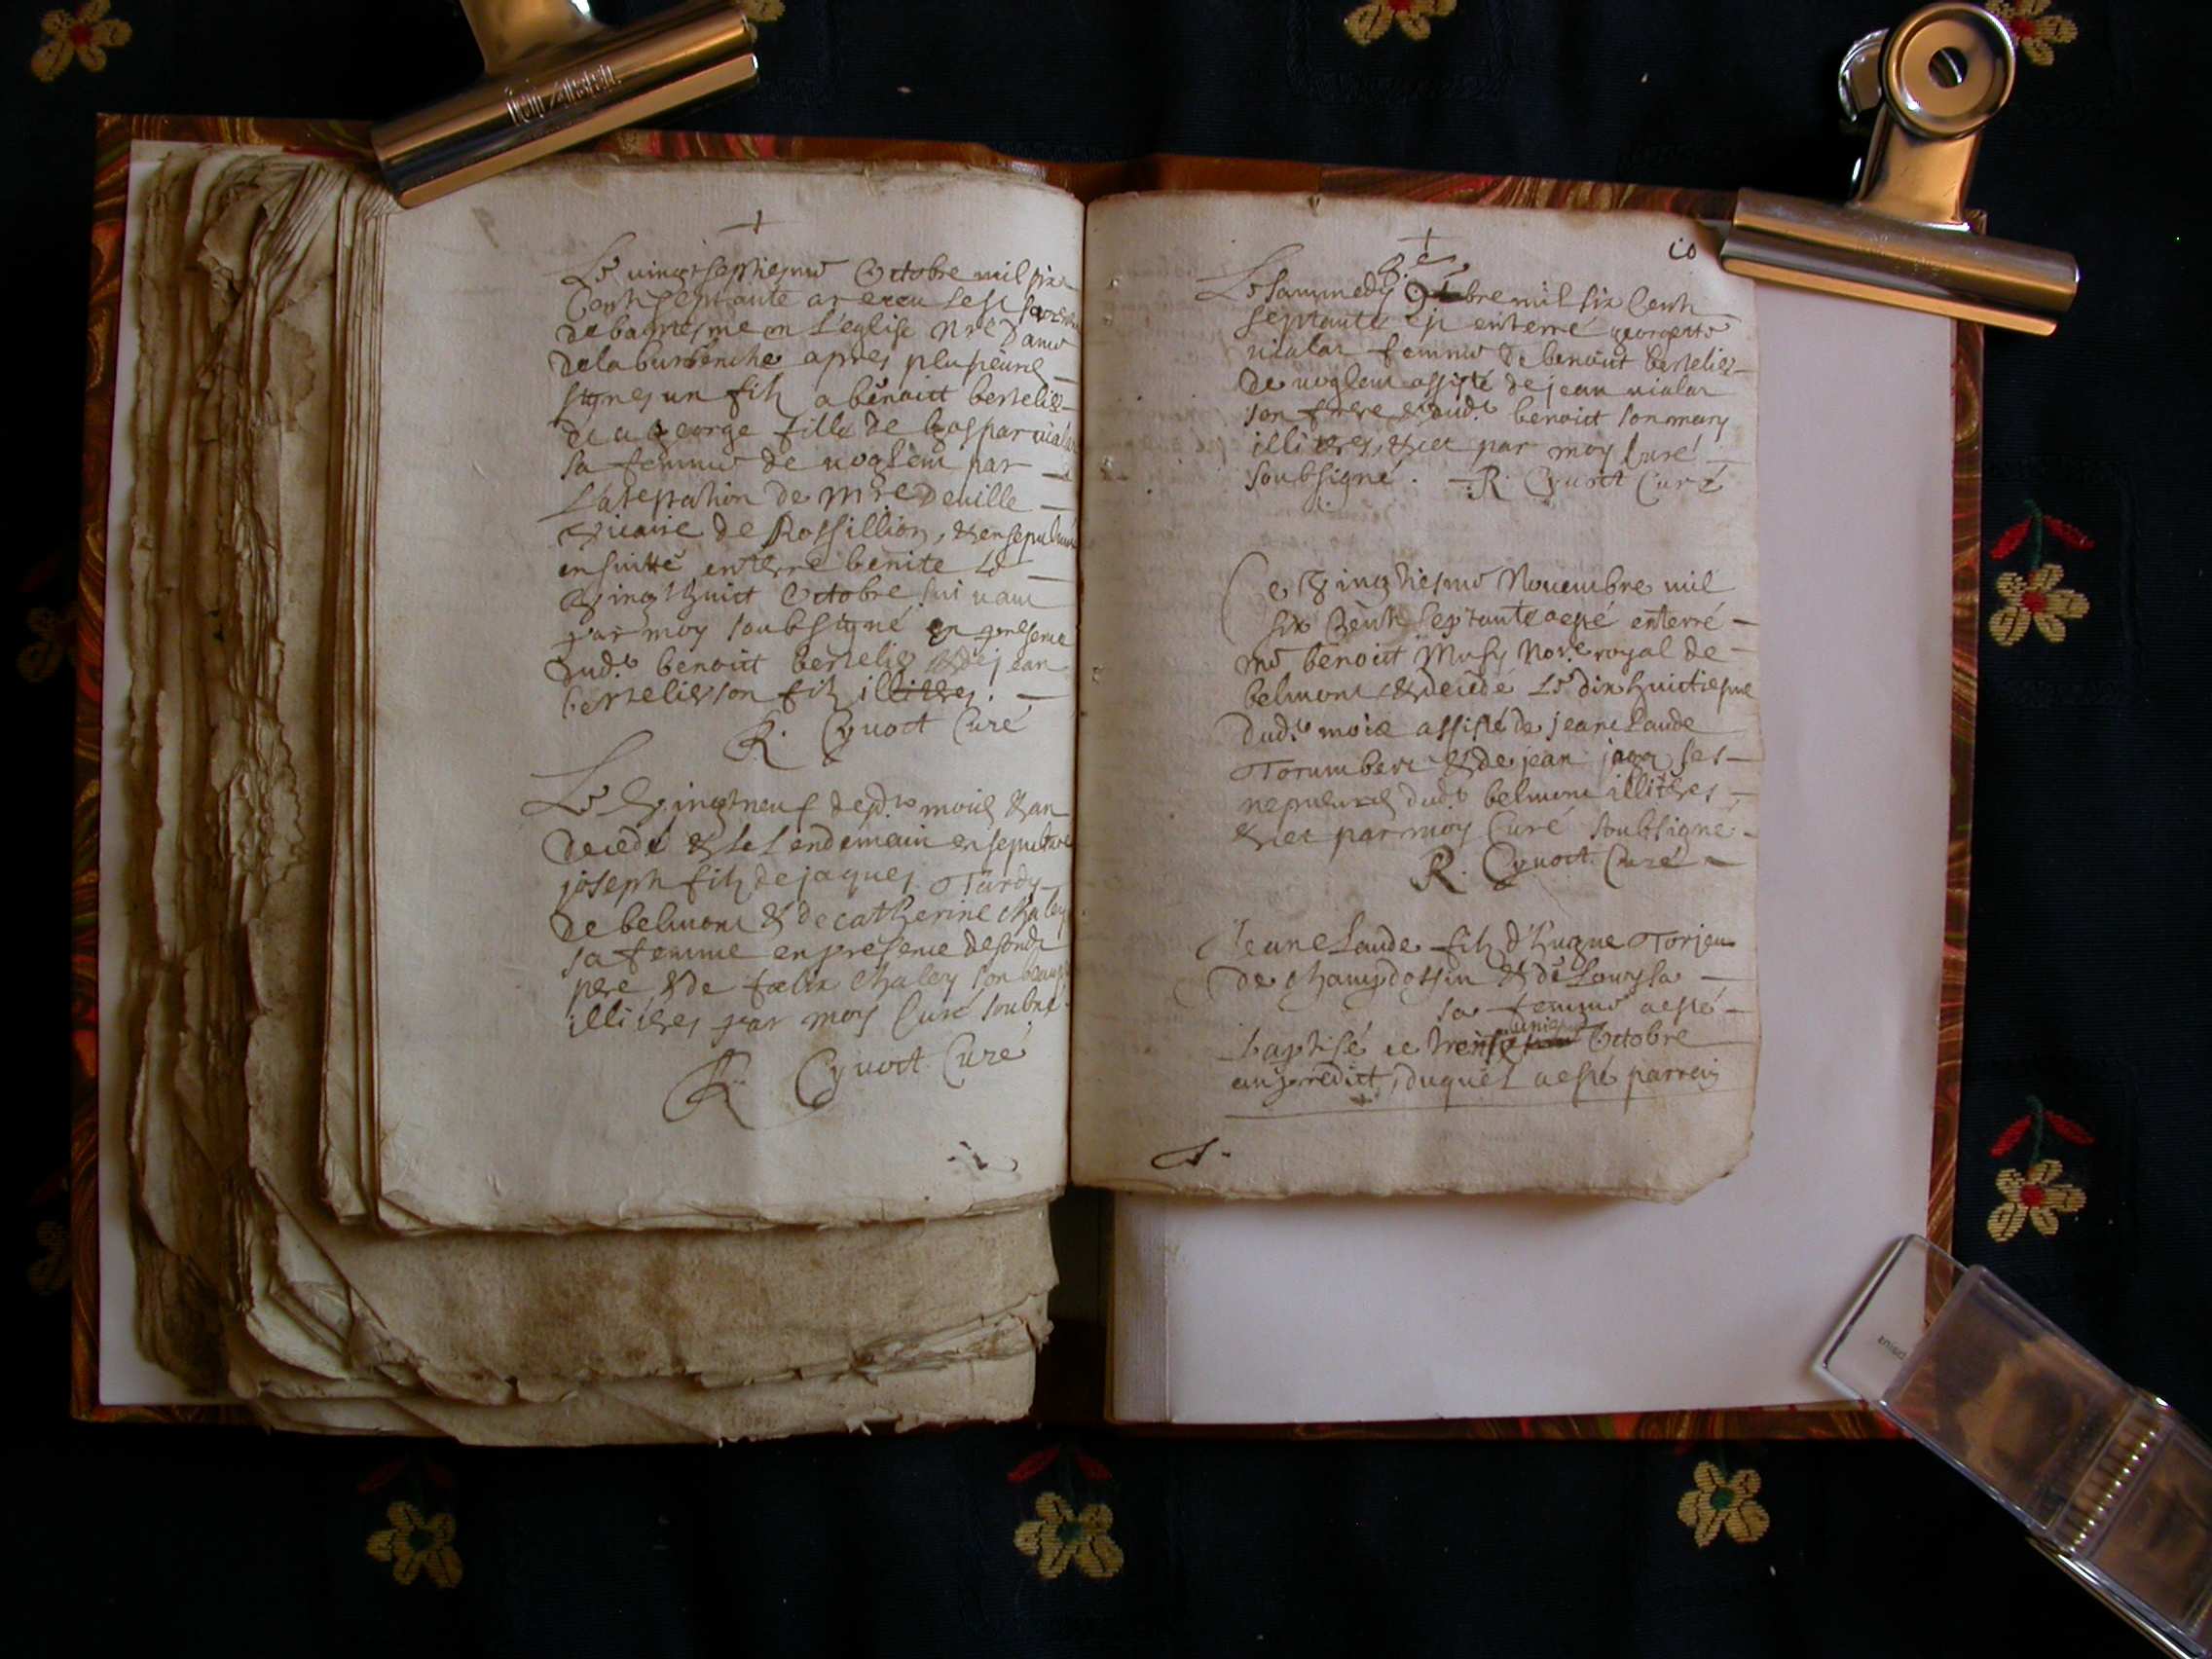 Le vingtseptiesme Octobre mil six
Cents septante a receu le st sacrem
de baptesme en l'eglise nre Dame
de la burbenche apres plusieurs
signes un filz a benoict bertelier
et a george fille de gaspar vialar
sa femme de voglein par
L'atestation de mre deville
vicaire de Rossillion, & ensepulturé
ensuitte enterre benite le
vingthuict Octobre suivant
par moy soubsigné en presence
dudt benoict bertelier & de jean
bertelier son filz illitres.
R. Cynoct Curé
Le vingtneuf desdt mois & an
decedé & le lendemain ensepulturé
joseph filz de jaques Tardy
de belmont & de catherine chaley
sa femme en presence de sondt
pere & de felix Chaley son
illitres par moy Curé soubné
R. Cynoct Curé
10
Le sammedy 8e bre mil six Cents
septante est enterré georgette
vialar femme de benoict bertelier
de voglein assisté de jean vialar
son frere & dudt benoict son mary
illitres, & ce par moy Curé
soubsigné. R. Cynoct Curé
Ce Vingtiesme Novembre mil
six Cents septante a esté enterré
me benoict Musy Nore royal de
belmont & decedé le dix huictiesme
dudt mois assisté de jeanclaude
Torumbert & de jean ses
nepveurs dudt belmont illitres
& ce par moy Curé soubsigné
R. Cynoct Curé
Jeanclaude filz d'hugue Torjeu
de champdossin & de Louysa
sa femme a esté
baptisé ce trente uniesme Octobre
an predict, duquel a esté parrein